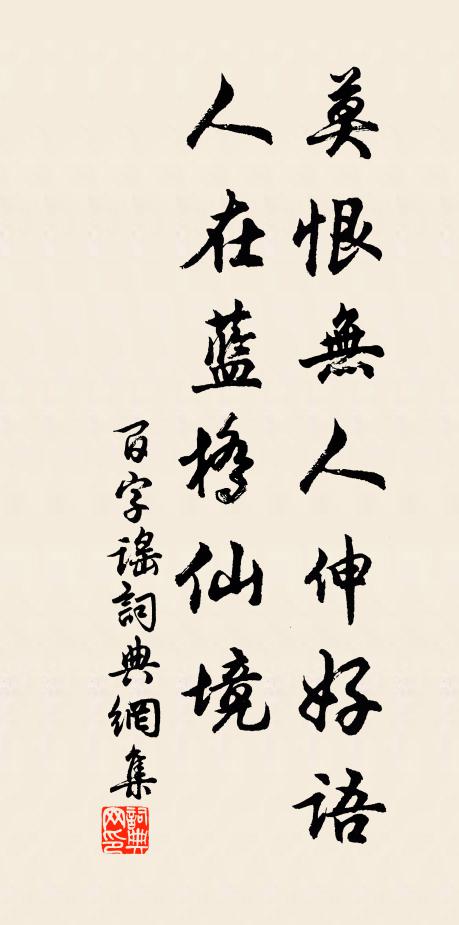 莫恨無人伸好語
人在藍橋仙境
百字謠詞典網集
詞典网印